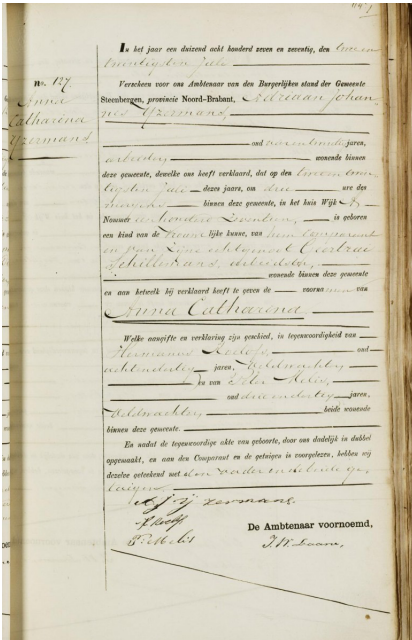 No. 127.
Anna
Catharina
Yzermans,
In het jaar een duizend acht honderd zeven en zeventig, den twee en
twintigsten Julij
Verscheen voor ons Ambtenaar van den Burgerlijken stand der Gemeente
Steenbergen, provincie Noord-Brabant, Adriaan Johan
nes Yzermans,
oud jaren,
arbeider, wonende binnen
deze gemeente, dewelke ons heeft verklaard, dat op den twee en twin-
tigsten Julij dezer jaren, om drie ure des
binnen deze gemeente, in het huis Wijk A,
Nommer een honderd zeventien, is geboren
een kind van de Vrouwelijke kunne, van hem Comparant
en van zijne echtgenoot Geertrui
Schillemans, arbeidster,
wonende binnen deze gemeente
en aan hetwelk hij verklaard heeft te geven de voornamen van
Anna Catharina
Welke aangifte en verklaring zijn geschied, in tegenwoordigheid van
Hermanus oud
achtendertig jaren, Veldwachter,
en van Peter
oud drieendertig jaren,
veldwachter, beide wonende
binnen deze gemeente.
En nadat de tegenwoordige akte van geboorte, door ons dadelijk in dubbel
opgemaakt, en aan den Comparant en de getuigen is voorgelezen, hebben wij
dezelve geteekend met den vader en de beide ge-
tuigen.
A J Yzermans.
De Ambtenaar voornoemd,